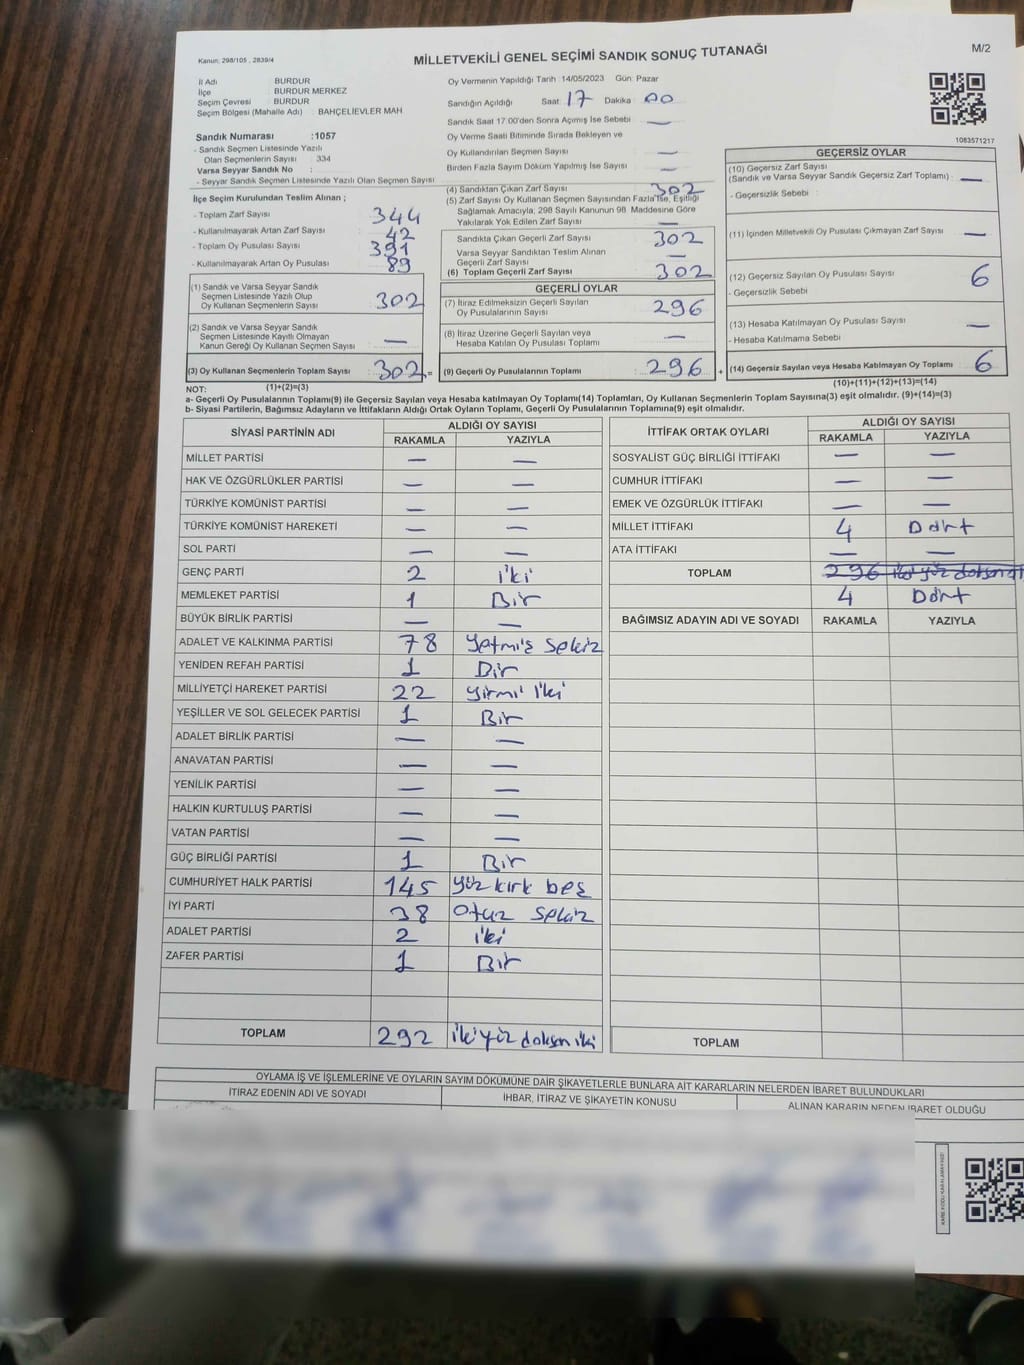 Kanun: 298/105 , 2839/4
MİLLETVEKİLİ GENEL SEÇİMİ SANDIK SONUÇ TUTANAĞI
M/2
İl Adı BURDUR
İlçe BURDUR MERKEZ
Seçim Çevresi BURDUR
Seçim Bölgesi (Mahalle Adı) : BAHÇELİEVLER MAH
Sandık Numarası :1057
- Sandık Seçmen Listesinde Yazılı
Olan Seçmenlerin Sayısı : 334
Varsa Seyyar Sandık No :
- Seyyar Sandık Seçmen Listesinde Yazılı Olan Seçmen Sayısı
Oy Vermenin Yapıldığı Tarih :14/05/2023 Gün: Pazar
Sandığın Açıldığı Saat 17 Dakika : 00
Sandık Saat 17:00'den Sonra Açımış İse Sebebi —
Oy Verme Saati Bitiminde Sırada Bekleyen ve
Oy Kullandırılan Seçmen Sayısı —
Birden Fazla Sayım Döküm Yapılmış İse Sayısı —
1083571217
İlçe Seçim Kurulundan Teslim Alınan ;
- Toplam Zarf Sayısı 344
- Kullanılmayarak Artan Zarf Sayısı 42
- Toplam Oy Pusulası Sayısı 391
- Kullanılmayarak Artan Oy Pusulası 89
(1) Sandık ve Varsa Seyyar Sandık
Seçmen Listesinde Yazılı Olup
Oy Kullanan Seçmenlerin Sayısı 302
(2) Sandık ve Varsa Seyyar Sandık
Seçmen Listesinde Kayıtlı Olmayan
Kanun Gereği Oy Kullanan Seçmen Sayısı —
(3) Oy Kullanan Seçmenlerin Toplam Sayısı 302 =
(4) Sandıktan Çıkan Zarf Sayısı 302
(5) Zarf Sayısı Oy Kullanan Seçmen Sayısından Fazla İse, Eşitliği
Sağlamak Amacıyla, 298 Sayılı Kanunun 98. Maddesine Göre
Yakılarak Yok Edilen Zarf Sayısı —
Sandıkta Çıkan Geçerli Zarf Sayısı 302
Varsa Seyyar Sandıktan Teslim Alınan
Geçerli Zarf Sayısı —
(6) Toplam Geçerli Zarf Sayısı 302
GEÇERLİ OYLAR
(7) İtiraz Edilmeksizin Geçerli Sayılan
Oy Pusulalarının Sayısı 296
(8) İtiraz Üzerine Geçerli Sayılan veya
Hesaba Katılan Oy Pusulası Toplamı —
(9) Geçerli Oy Pusulalarının Toplamı : 296 +
GEÇERSİZ OYLAR
(10) Geçersiz Zarf Sayısı
(Sandık ve Varsa Seyyar Sandık Geçersiz Zarf Toplamı) : —
- Geçersizlik Sebebi :
(11) İçinden Milletvekili Oy Pusulası Çıkmayan Zarf Sayısı —
(12) Geçersiz Sayılan Oy Pusulası Sayısı 6
- Geçersizlik Sebebi
(13) Hesaba Katılmayan Oy Pusulası Sayısı —
- Hesaba Katılmama Sebebi
(14) Geçersiz Sayılan veya Hesaba Katılmayan Oy Toplamı 6
NOT: (1)+(2)=(3)
(10)+(11)+(12)+(13)=(14)
a- Geçerli Oy Pusulalarının Toplamı(9) ile Geçersiz Sayılan veya Hesaba katılmayan Oy Toplamı(14) Toplamları, Oy Kullanan Seçmenlerin Toplam Sayısına(3) eşit olmalıdır. (9)+(14)=(3)
b- Siyasi Partilerin, Bağımsız Adayların ve İttifakların Aldığı Ortak Oyların Toplamı, Geçerli Oy Pusulalarının Toplamına(9) eşit olmalıdır.
SİYASİ PARTİNİN ADI ALDIĞI OY SAYISI
RAKAMLA YAZIYLA
MİLLET PARTİSİ — —
HAK VE ÖZGÜRLÜKLER PARTİSİ — —
TÜRKİYE KOMÜNİST PARTİSİ — —
TÜRKİYE KOMÜNİST HAREKETİ — —
SOL PARTİ — —
GENÇ PARTİ 2 iki
MEMLEKET PARTİSİ 1 Bir
BÜYÜK BİRLİK PARTİSİ — —
ADALET VE KALKINMA PARTİSİ 78 Yetmiş Sekiz
YENİDEN REFAH PARTİSİ 1 Bir
MİLLİYETÇİ HAREKET PARTİSİ 22 yirmi iki
YEŞİLLER VE SOL GELECEK PARTİSİ 1 Bir
ADALET BİRLİK PARTİSİ — —
ANAVATAN PARTİSİ — —
YENİLİK PARTİSİ — —
HALKIN KURTULUŞ PARTİSİ — —
VATAN PARTİSİ — —
GÜÇ BİRLİĞİ PARTİSİ 1 Bir
CUMHURİYET HALK PARTİSİ 145 yüz kırk beş
İYİ PARTİ 38 otuz sekiz
ADALET PARTİSİ 2 iki
ZAFER PARTİSİ 1 Bir
TOPLAM 292 ikiyüz doksan iki
İTTİFAK ORTAK OYLARI ALDIĞI OY SAYISI
RAKAMLA YAZIYLA
SOSYALİST GÜÇ BİRLİĞİ İTTİFAKI — —
CUMHUR İTTİFAKI — —
EMEK VE ÖZGÜRLÜK İTTİFAKI — —
MİLLET İTTİFAKI 4 Dört
ATA İTTİFAKI — —
TOPLAM 296 iki yüz doksan altı
4 Dört
BAĞIMSIZ ADAYIN ADI VE SOYADI RAKAMLA YAZIYLA
TOPLAM
OYLAMA İŞ VE İŞLEMLERİNE VE OYLARIN SAYIM DÖKÜMÜNE DAİR ŞİKAYETLERLE BUNLARA AİT KARARLARIN NELERDEN İBARET BULUNDUKLARI
İTİRAZ EDENİN ADI VE SOYADI İHBAR, İTİRAZ VE ŞİKAYETİN KONUSU ALINAN KARARIN NEDEN İBARET OLDUĞU